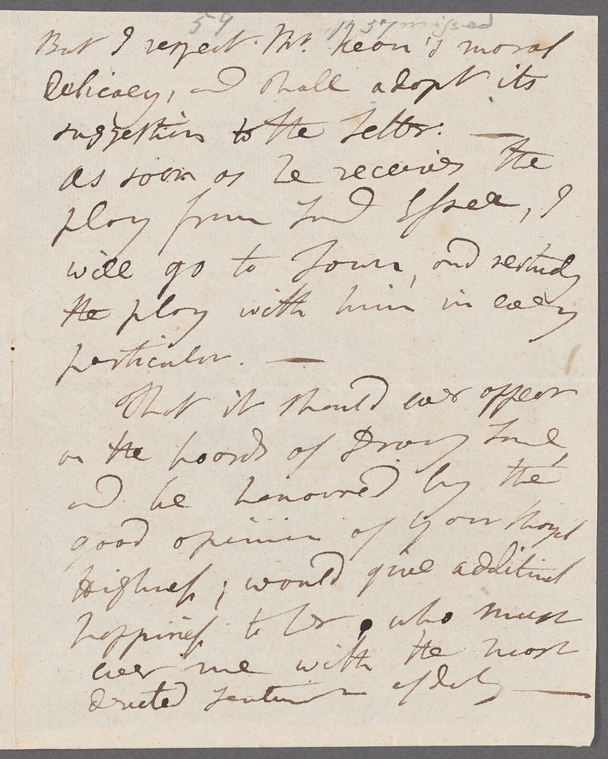 59 1757 missed
But I respect Mr. Kean's moral
delicacy, and shall adopt its
suggestion to the letter. —
As soon as he receives the
play from Lord Essex, I
will go to Town, and restudy
the play with him in every
particular. —
That it should ever appear
on the boards of Drury Lane
and be honoured by the
good opinion of your Royal
Highness; would give additional
happiness to her, who must
ever me with the most
devoted sentiments of duty —